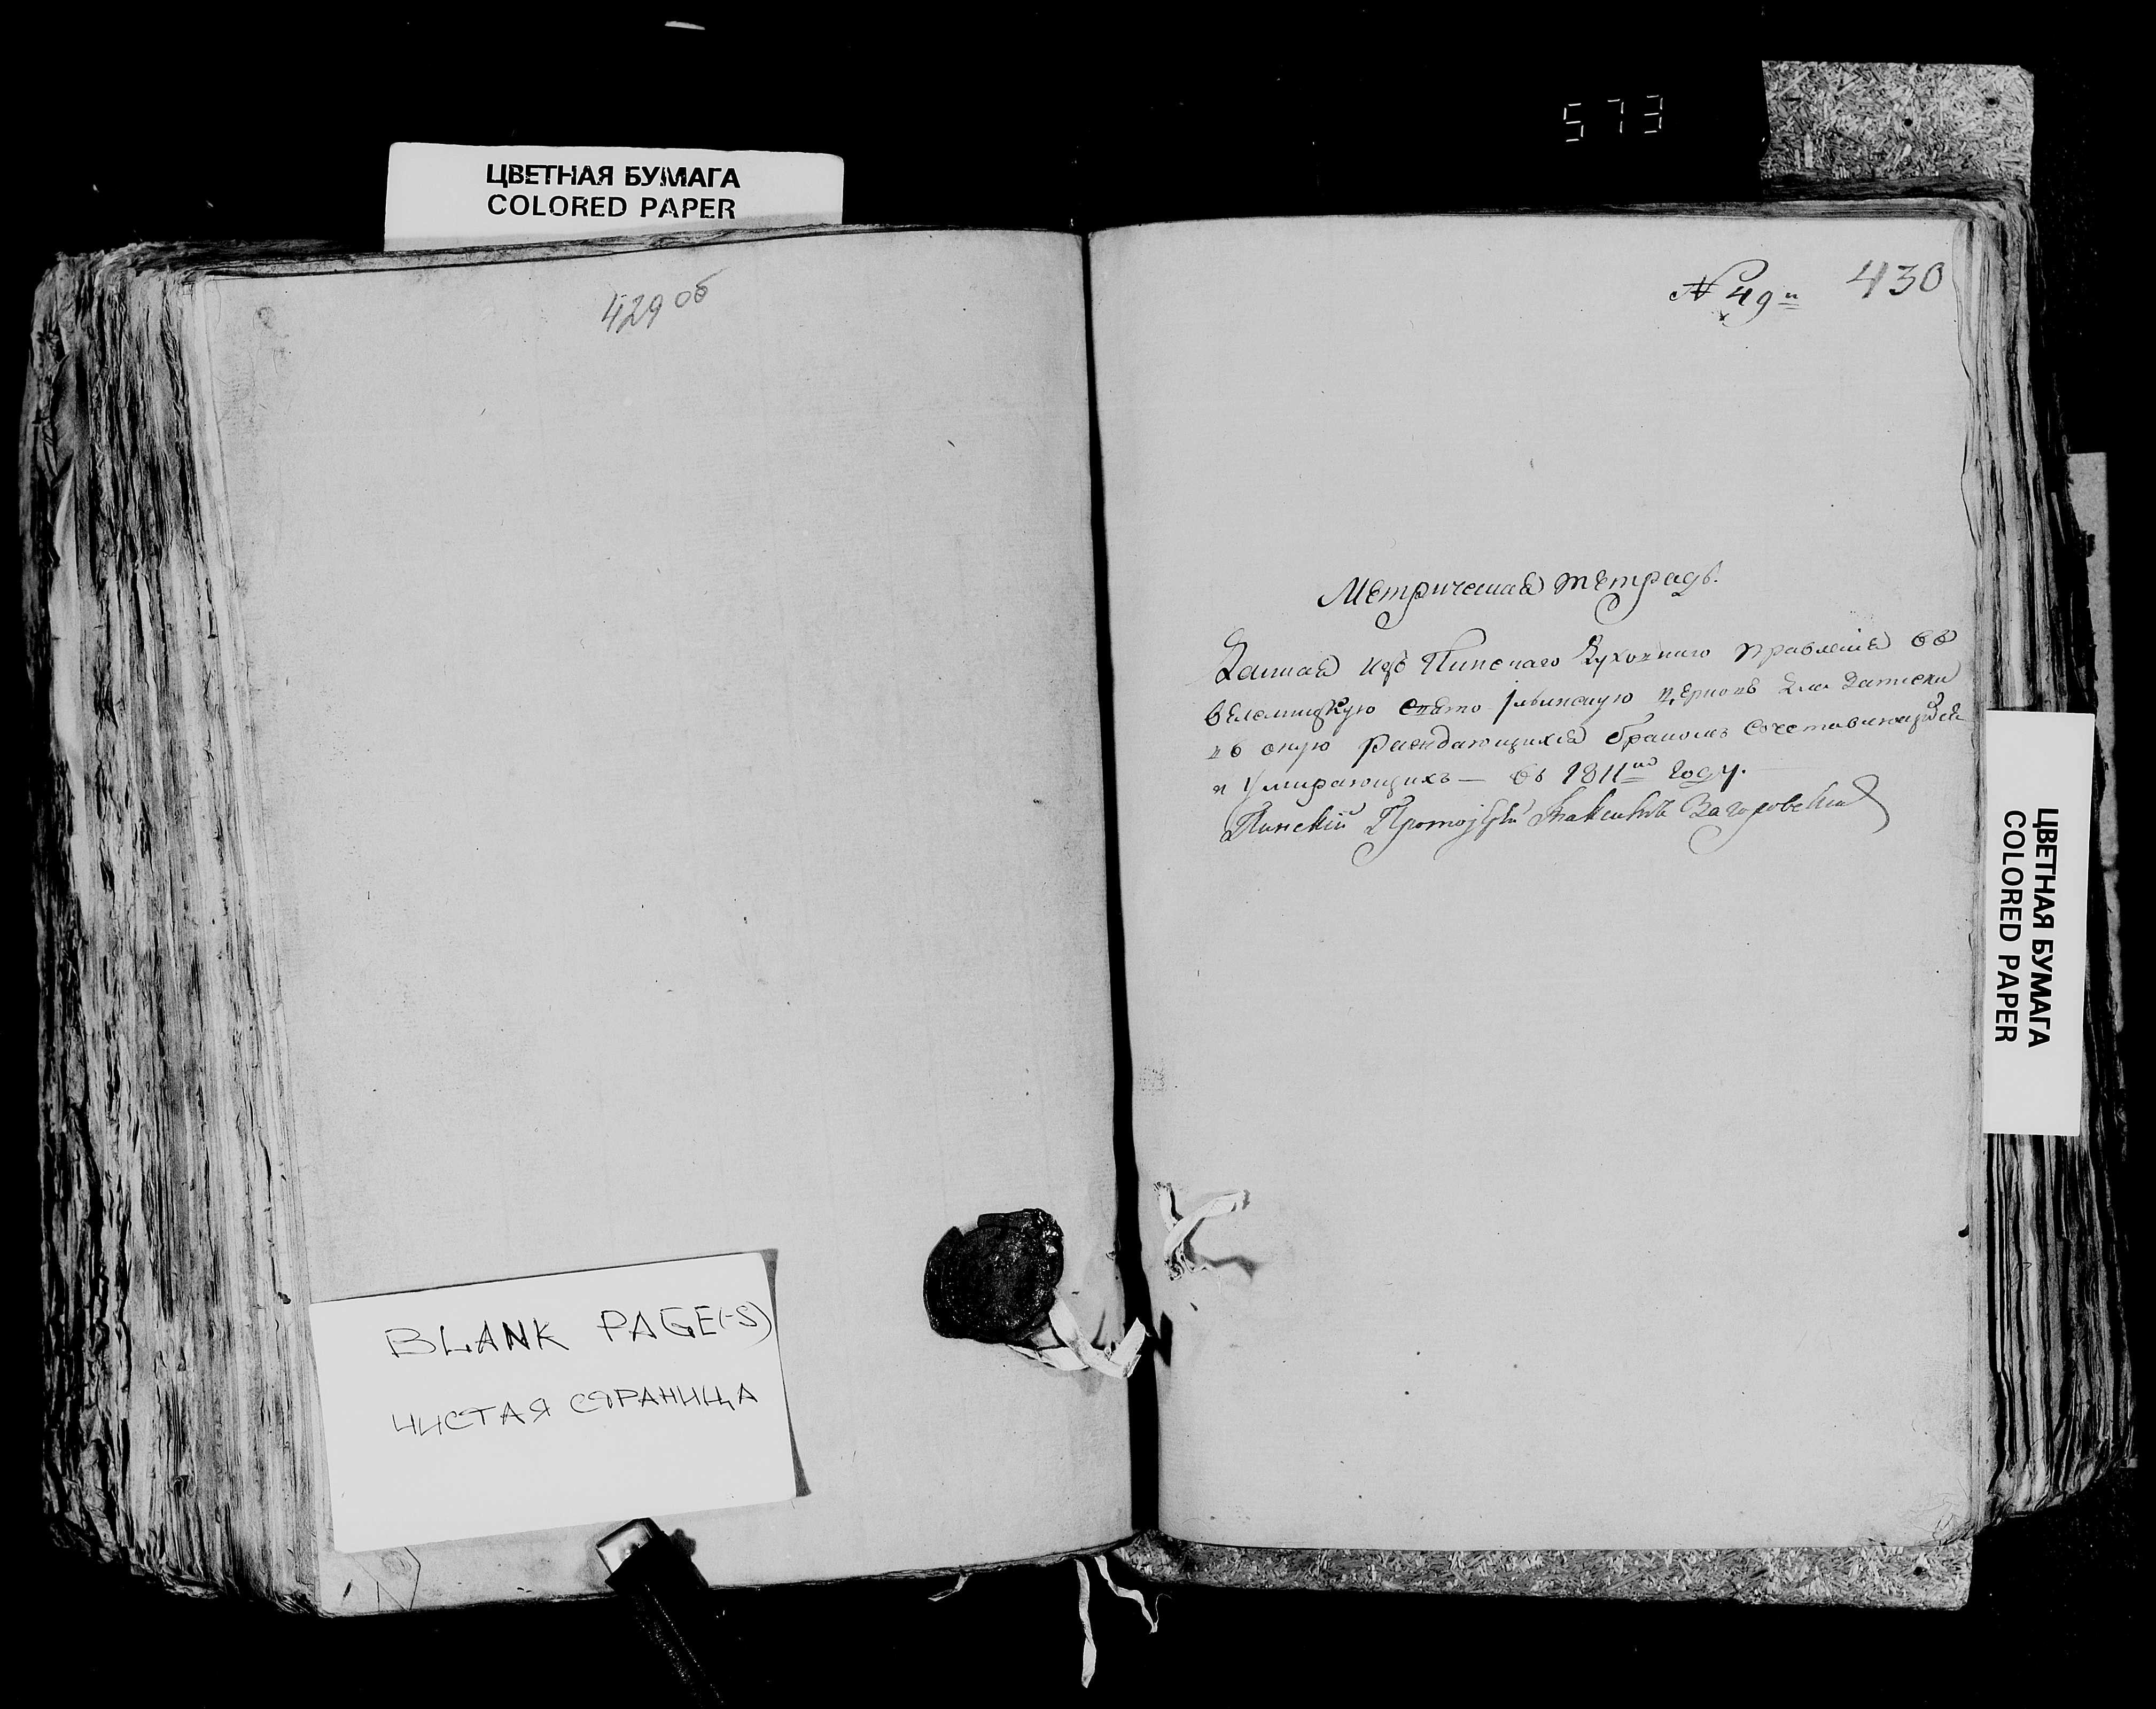 573
ЦВЕТНАЯ БУМАГА
COLORED PAPER
429 об
№ 49й
430
Метрическая тетрадь.
Данная изъ Пинскаго Духовнаго правленія въ
Свято церковь для записки
въ оную раждающихся бракомъ сочетавающихся
и умирающихъ — въ 1811мъ году.
Пинскій Протоіерей Загоровский
BLANK PAGE(-S)
ЧИСТАЯ СТРАНИЦА
ЦВЕТНАЯ БУМАГА
COLORED PAPER